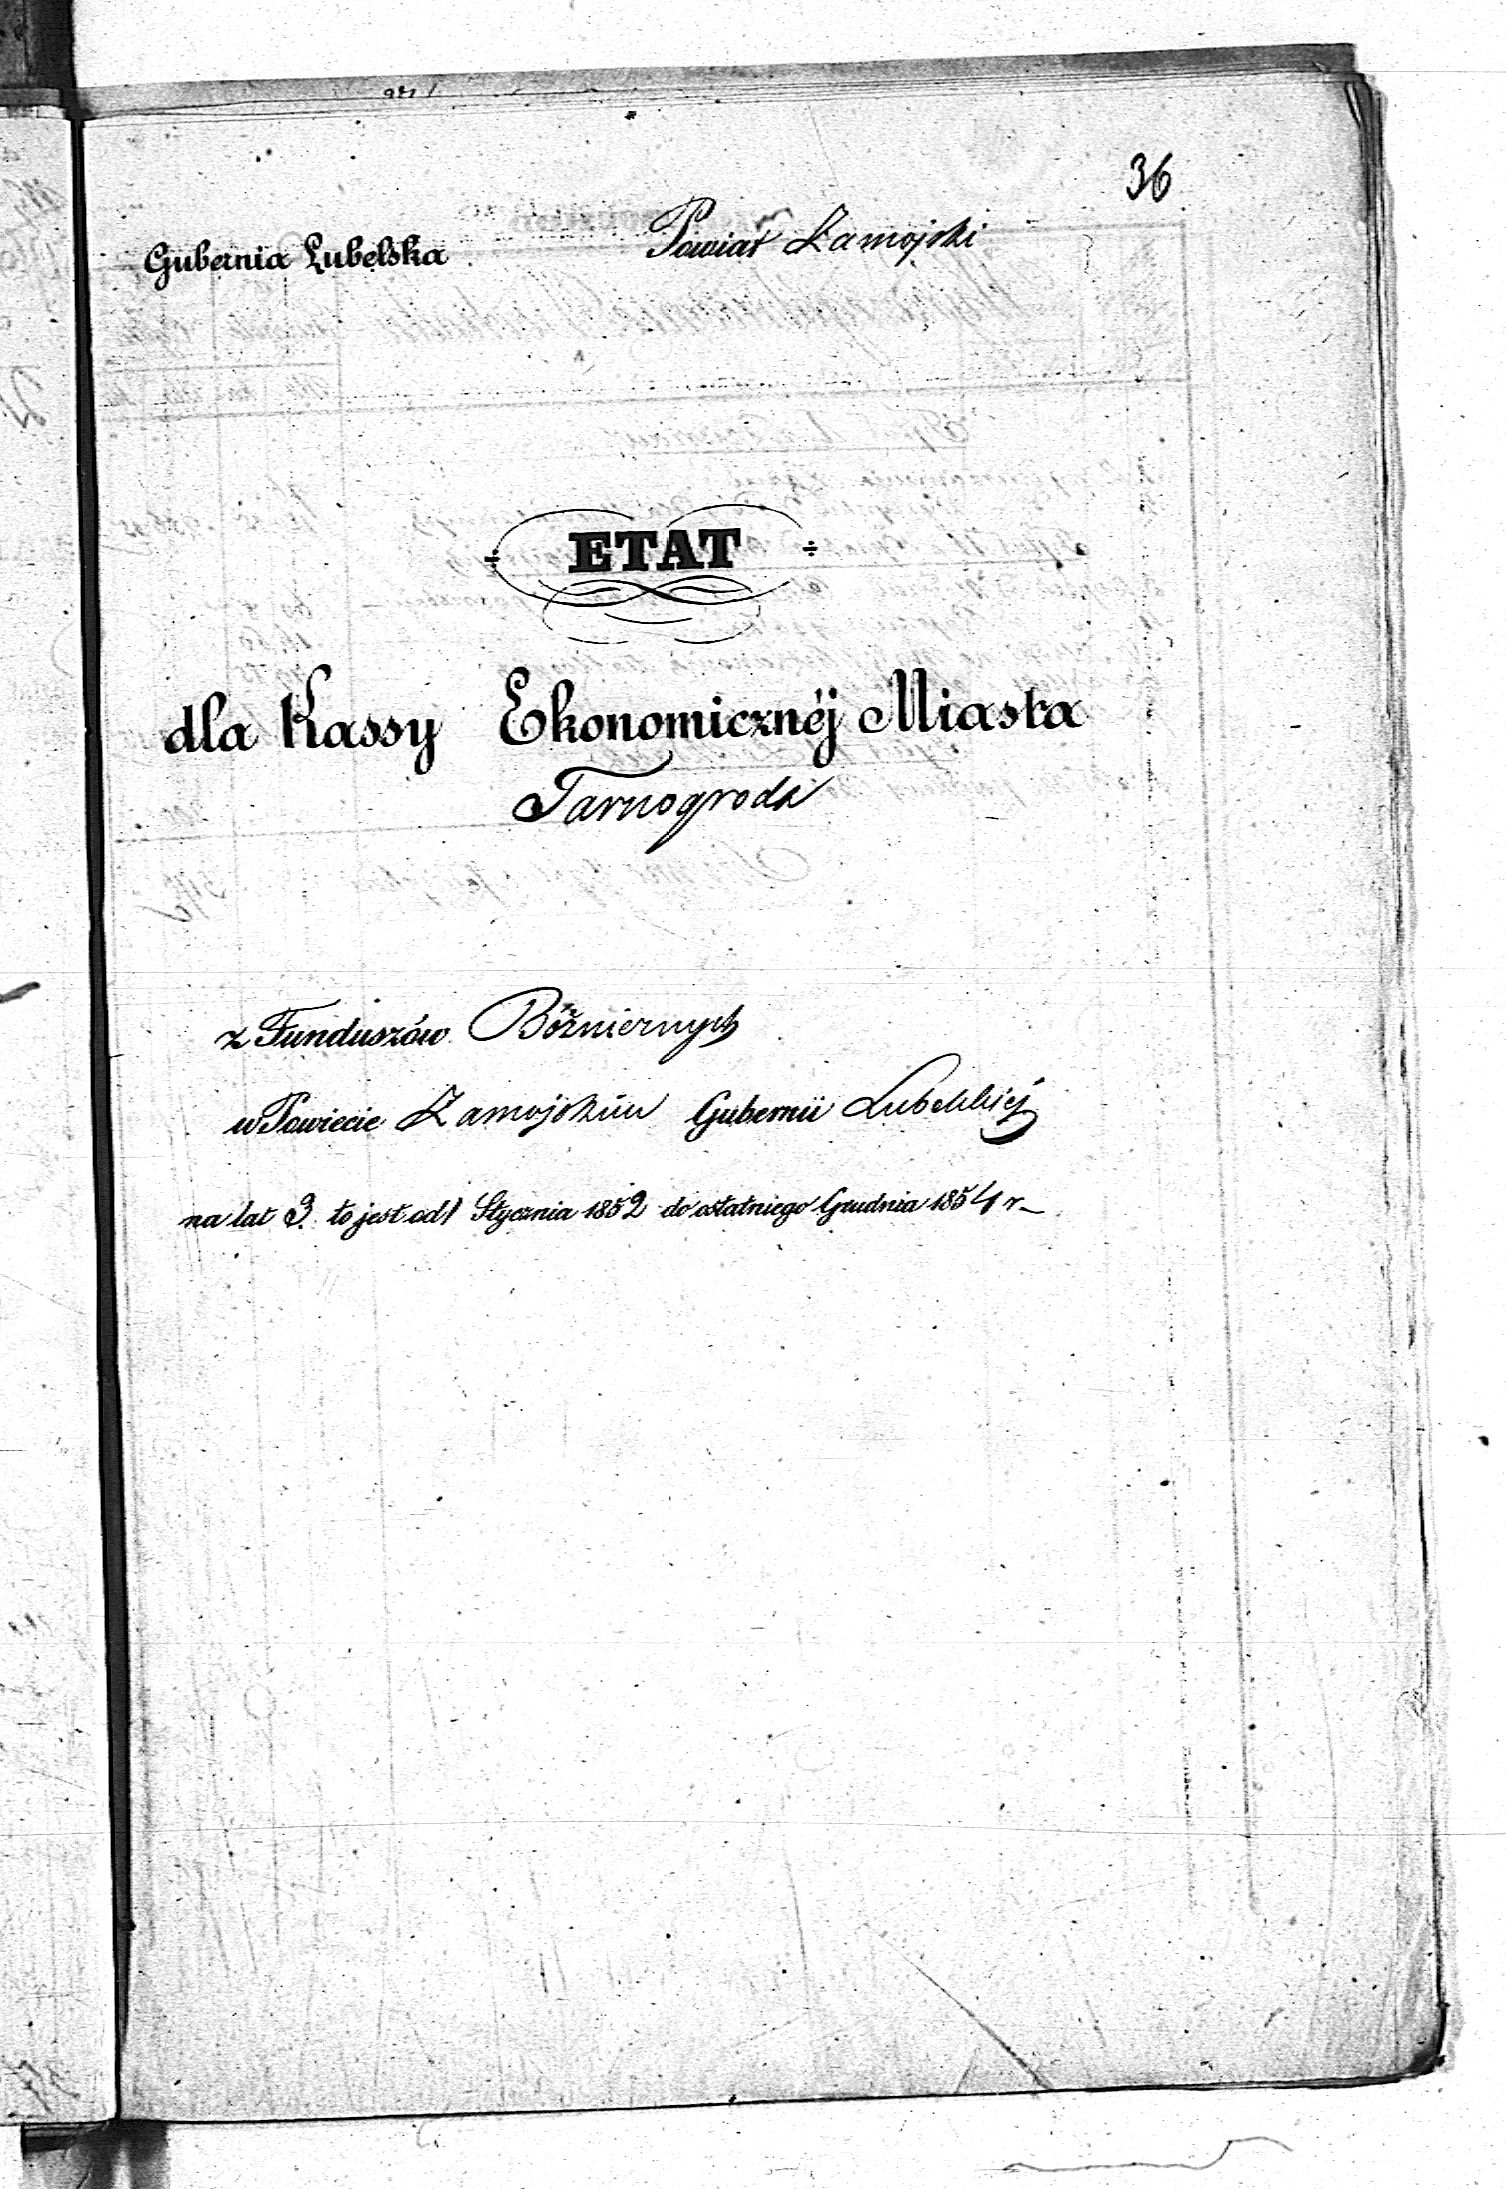 36
Gubernia Lubelska Powiat Zamojski
ETAT
dla Kassy Ekonomicznéj Miasta
Tarnogroda
z Funduszów Bóżniernych
w Powiecie Zamojskim Gubernii Lubelskiéj
na lat 3 to jest od 1 Stycznia 1852 do ostatniego Grudnia 1854 r